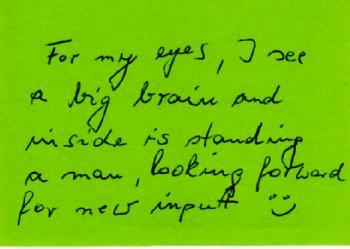 For my eyes, I see
a big brain and
inside is standing
a man, looking forward
for new input :)